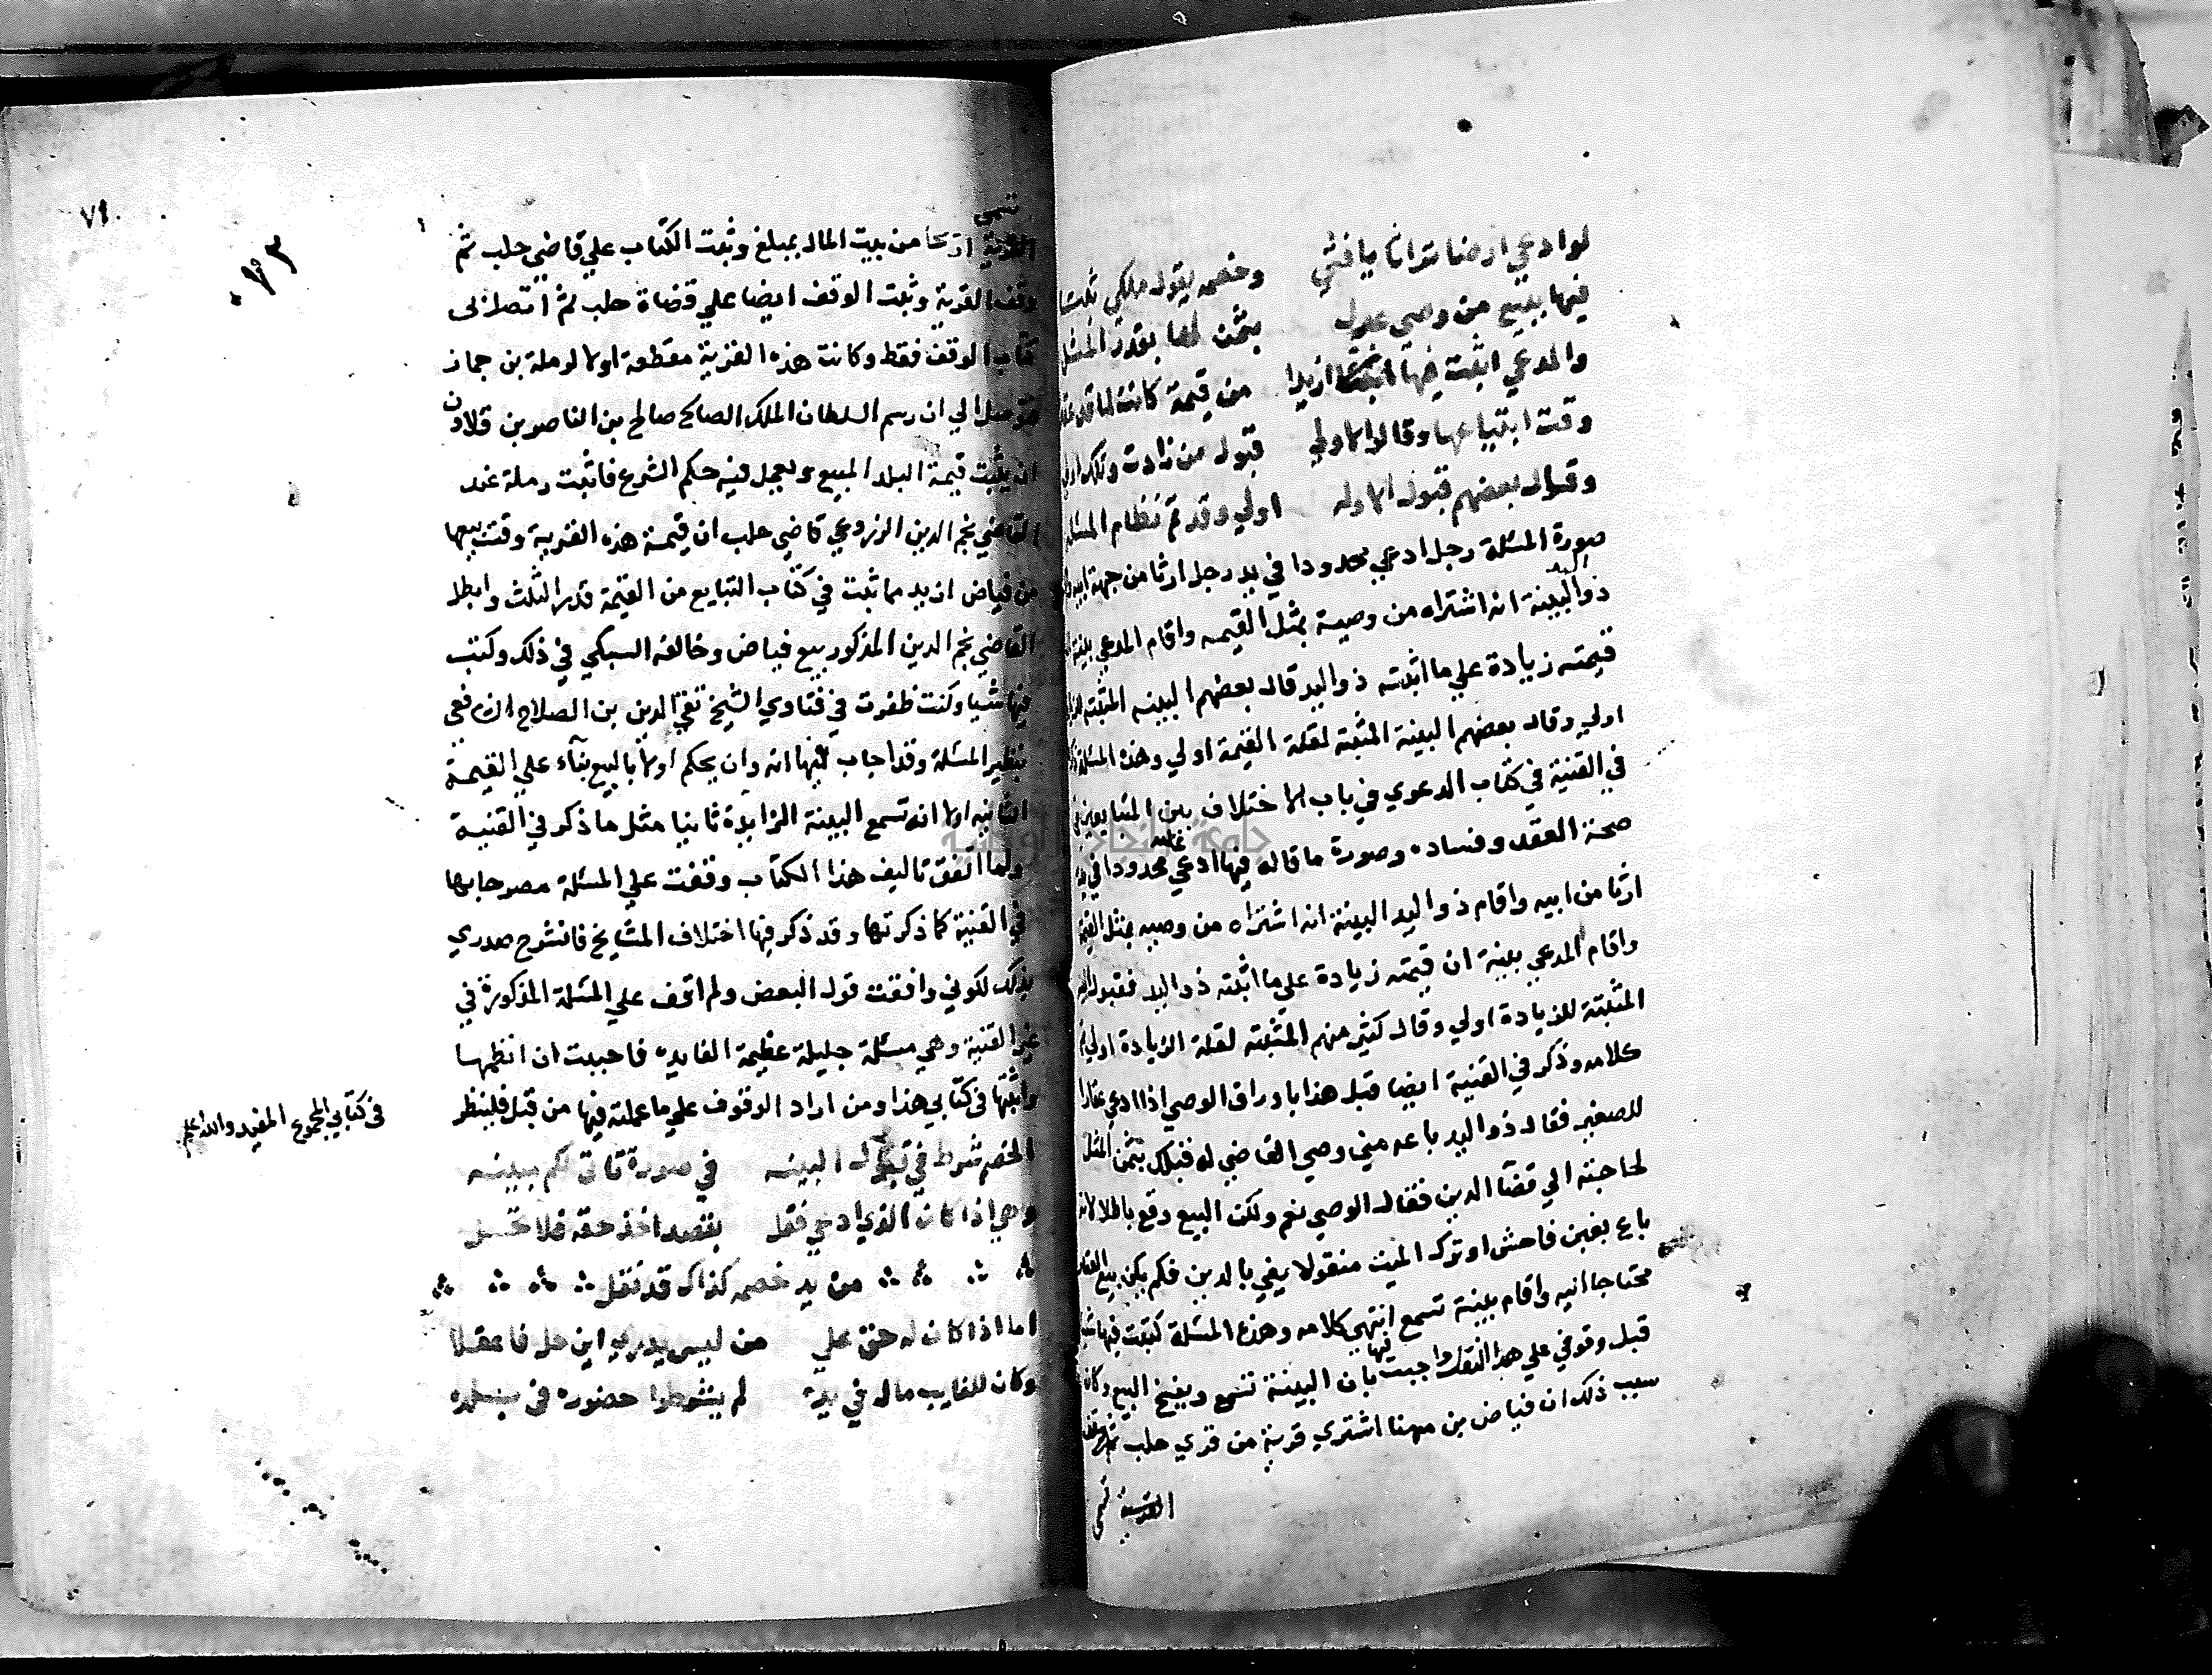 لو ادعي ارضا تراثا يا فتي وخصمه يقول ملكي ثبتا
فيها ببيع من وصي عدل بثمن لها بقدر المثل
والمدعي اثبت فيها ازيدا من قيمة كانت لها
وقت ابتياعها وقالوا الاولي قبول من زادت
وقال بعضهم قبول الاوله اولي وقد تم نظام المسئله
صورة المسئلة رجل ادعي محدودا في يد رجل ارثا من جهة ابيه
ذو اليد البينة انه اشتراه من وصيه بمثل القيمه واقام المدعي بينة
قيمته زيادة علي ما اثبته ذو اليد قال بعضهم البينه المثبته
اولي وقال بعضهم البينة المثبتة لقلة القيمة اولي وهذه المسئلة
في القنية في كتاب الدعوي في باب الاختلاف بين المتبايعين في
صحة العقد وفساده وصورة ما قاله فيها ادعي عليه محدودا في يده
ارثا من ابيه واقام ذو اليد البينة انه اشتراه من وصيه بمثل القيمة
واقام المدعي بينة ان قيمته زيادة علي ما اثبته ذو اليد فقبول
المثبتة للزيادة اولي وقال كثير منهم المثبته لقلة الزيادة اولي
كلامه وذكر في القنية ايضا قبل هذا باوراق الوصي اذا ادعي عقارا
للصغير فقال ذو اليد باعه مني وصي القاضي له قبلك بثمن المثل
لحاجته الي قضا الدين فقال الوصي نعم ولكن البيع وقع باطلا لانه
باع بغبن فاحش او ترك الميت منقولا يفي بالدين فلم يكن بيع العقار
محتاجا اليه واقام بينة تسمع انتهي كلامه وهذه المسئلة كتبت فيها شيا
قبل وقوفي علي هذا النقل واجبت فيها بان البينة تسمع ويفسخ البيع وكان
سبب ذلك ان فياض بن مهنا اشتري قرية من قري حلب
القرية تسمي
٧١
تسمي
القرية من بيت المال بمبلغ وثبت الكتاب علي قاضي حلب ثم
وقف القرية وثبت الوقف ايضا علي قضاة حلب ثم اتصل بي
كتاب الوقف فقط وكانت هذه القرية مقطعة اولا لرملة بن جماز
فتوصل الي ان رسم السلطان الملك الصالح صالح بن الناصر بن قلاون
ان يثبت قيمة البلد المبيع ويعمل فيه حكم الشرع فاثبت رملة عند
القاضي نجم الدين الزرعي قاضي حلب ان قيمة هذه القرية وقت بيعها
من فياض ازيد مما ثبت في كتاب التبايع من القيمة قدر الثلث وابطل
القاضي نجم الدين المذكور بيع فياض وخالفه السبكي في ذلك وكتب
فيها شيا وكنت ظفرت في فتاوي الشيخ تقي الدين بن الصلاح الشافعي
بنظير المسئلة وقد اجاب فيها انه وان يحكم اولا بالبيع بناء علي القيمة
الثانيه اولا انه تسمع البينة الزايدة ثانيا مثل ما ذكر في القنية
ولما اتفق تاليف هذا الكتاب وقفت علي المسئلة مصرحا بها
في القنية كما ذكرتها وقد ذكر فيها اختلاف المشايخ فانشرح صدري
بذلك لكوني وافقت قول البعض ولم اقف علي المسئلة المذكورة في
غير القنية وهي مسئلة جليلة عظيمة الفايده فاحببت ان انظمها
واثبتها في كتابي هذا ومن اراد الوقوف علي ما عملته فيها من قبل فلينظر
في كتابي المجموع المفيد والله اعلم
الخصم شرط في قبول البينه في صورة تاتي لكم مبينه
وهي اذا كان الذي ادعي فقل بقصد اخذ حقه فلا تحل
من يد خصم كذاك قد نقل
اما اذا كان له حق علي من ليس يدري اين حل فاعقلا
وكان للغايب مال في يده لم يشترطوا حضوره في